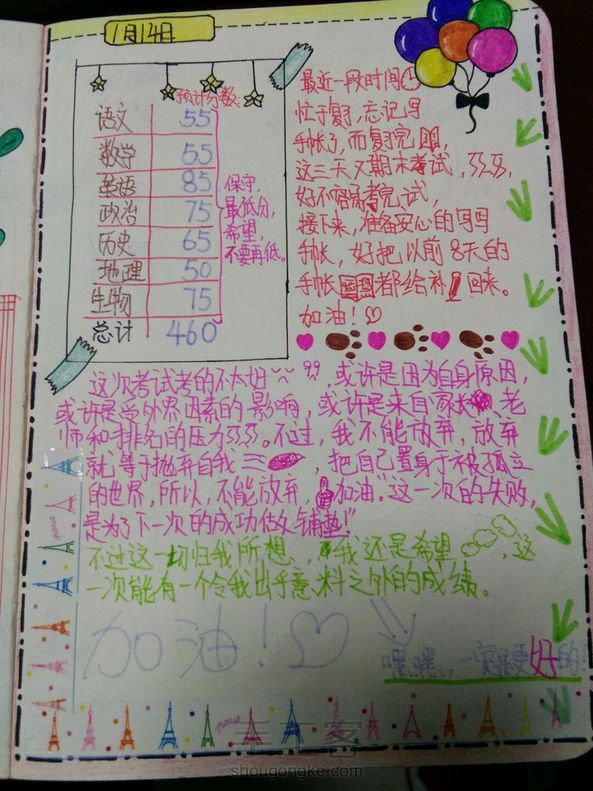 1月14日
预计分数:
语文 55
数学 55
英语 85
政治 75
历史 65
地理 50
生物 75
总计 460
保守,
最低分,
希望,
不要再低。
最近一段时间
忙于复习,忘记写
手帐了,而复习完
这三天又期末考试,
好不容易考完试,
接下来,准备安心的写写
手帐,好把以前8天的
手帐都给补回来。
加油!
这次考试考的不太好,或许是因为自身原因,
或许是受外界因素的影响,或许是来自家长、老
师和排名的压力。不过,我不能放弃,放弃
就等于抛弃自我,把自己置身于被孤立
的世界,所以,不能放弃,加油。"这一次的失败,
是为了下一次的成功做铺垫!"
不过这一切归我所想,我还是希望,这
一次能有一个令我出乎意料之外的成绩。
加油!
嘿嘿,一定是更好的!
paris
paris
paris
手工客
shougongke.com